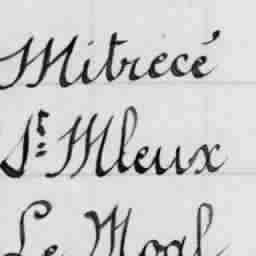 Mitrecé
St Mleux
Le Moal